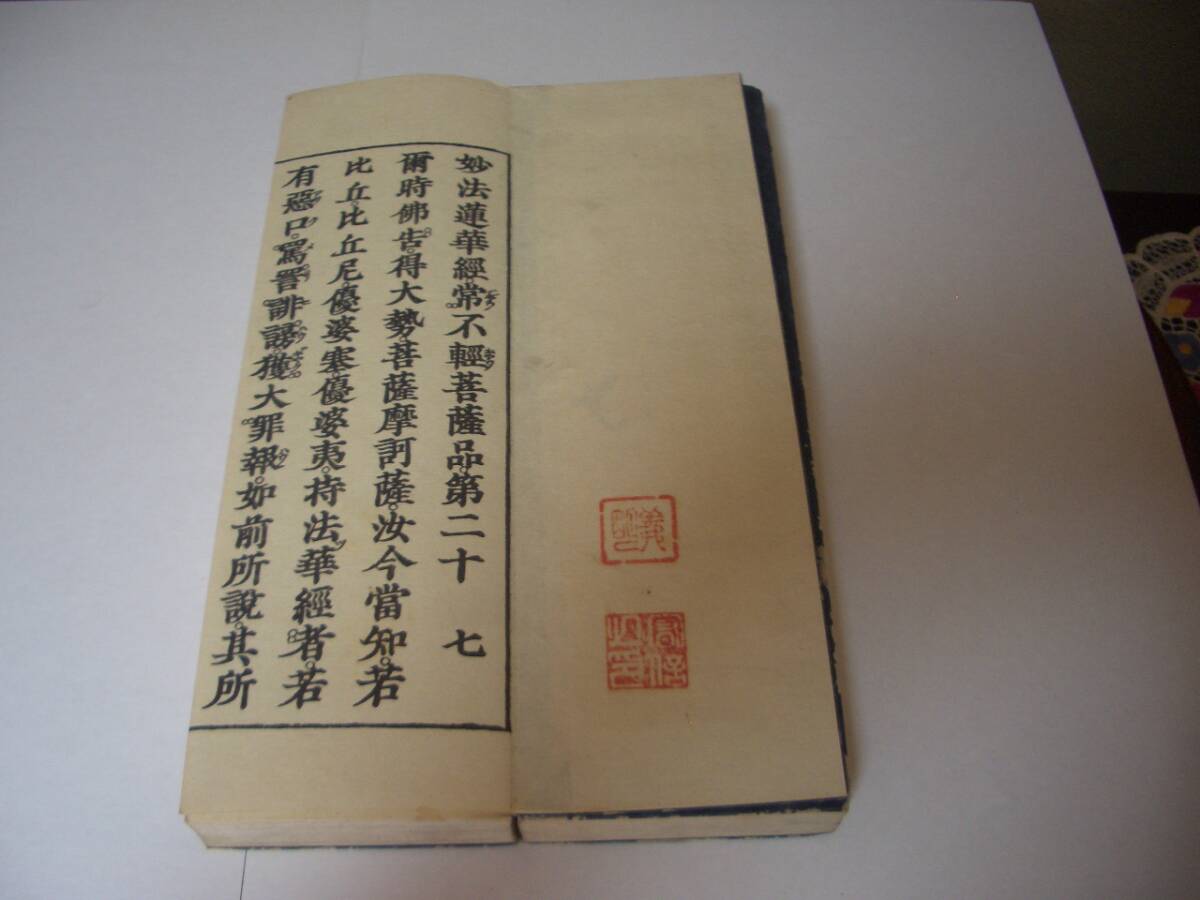 妙法蓮華經常不輕菩薩品第二十 七
爾時佛告得大勢菩薩摩訶薩汝今當知若
比丘比丘尼優婆塞優婆夷持法華經者若
有惡口罵詈誹謗獲大罪報如前所說其所